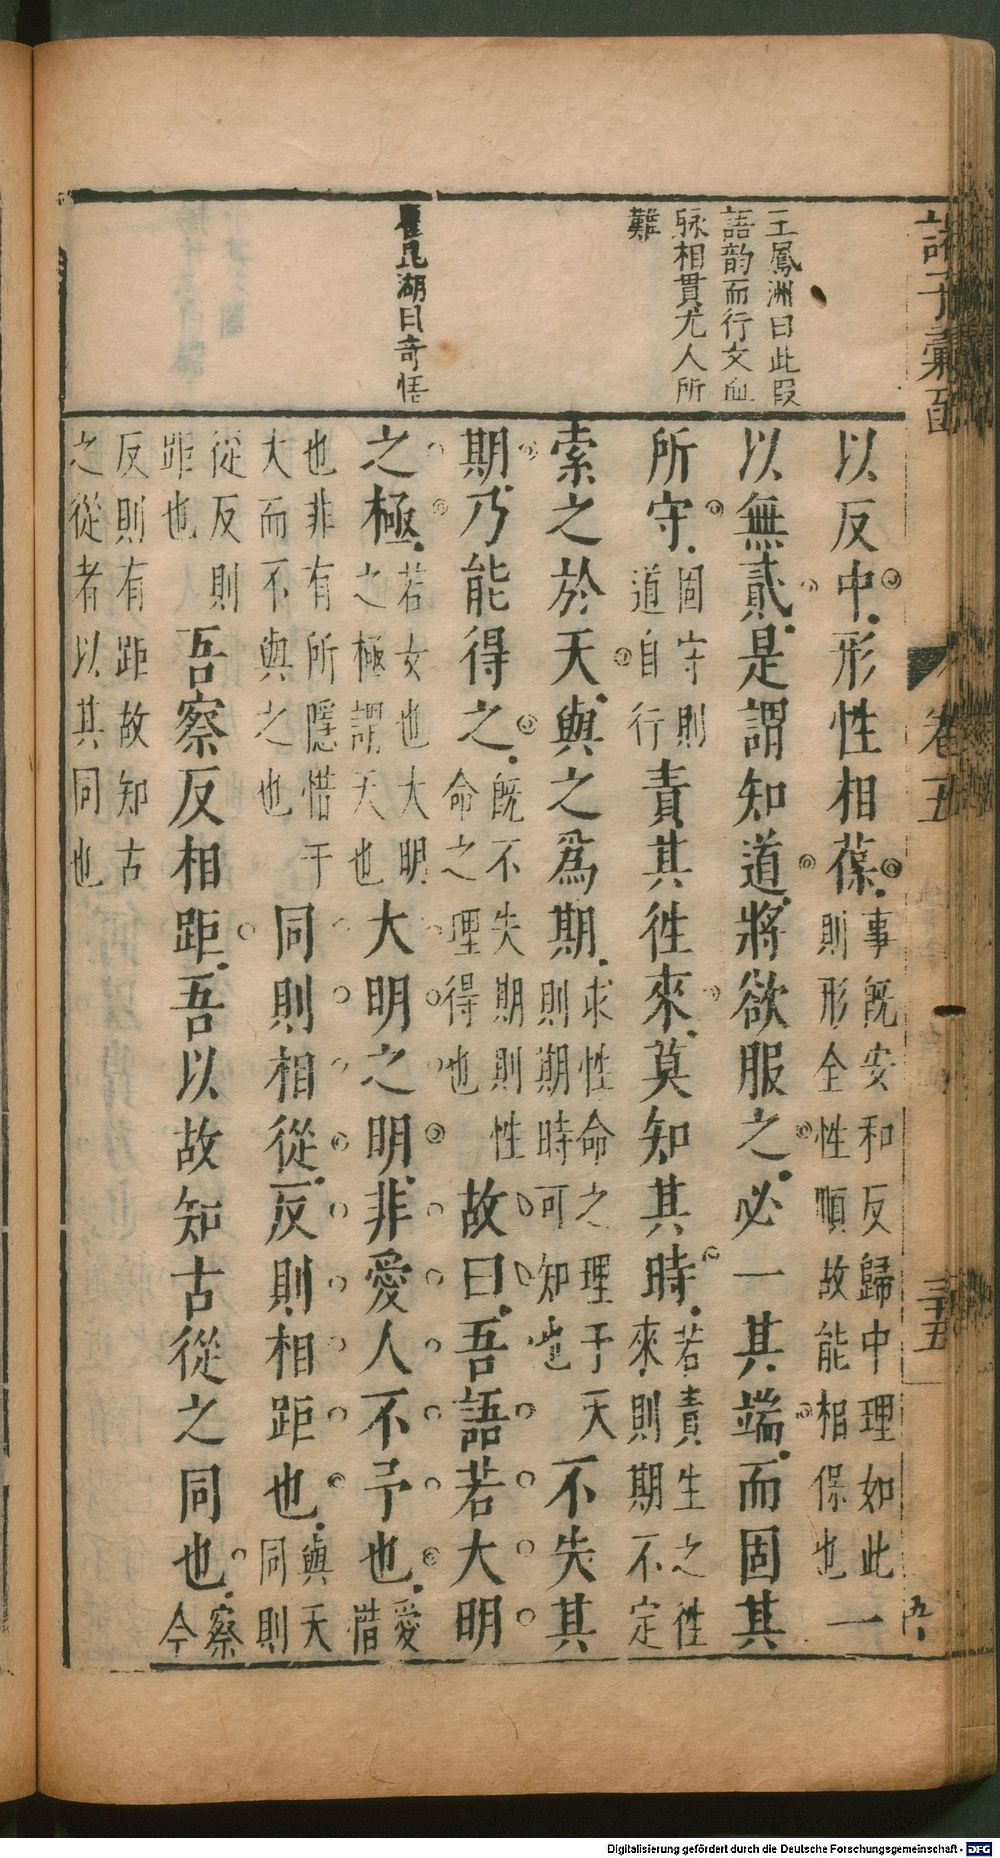 諸子彙函
卷五
三十五
五
王鳳洲曰此叚
語韵而行文血
脉相貫尤人所
難
瞿昆湖曰奇悟
以反中形性相葆事既安和反歸中理如此則形全性順故能相保也一
以無貳是謂知道將欲服之必一其端而固其
所守固守則道自行責其徃來莫知其時若責生之徃來則期不定
索之於天與之為期求性命之理于天則期時可知也不失其
期乃能得之既不失期則性命之理得也故曰吾語若大明
之極若女也大明之極謂天也大明之明非愛人不予也愛惜
也非有所隱惜于大而不與之也同則相從反則相距也與天同則
從反則距也吾察反相距吾以故知古從之同也察今
反則有距故知古之從者以其同也
Digitalisierung gefördert durch die Deutsche Forschungsgemeinschaft - DFG